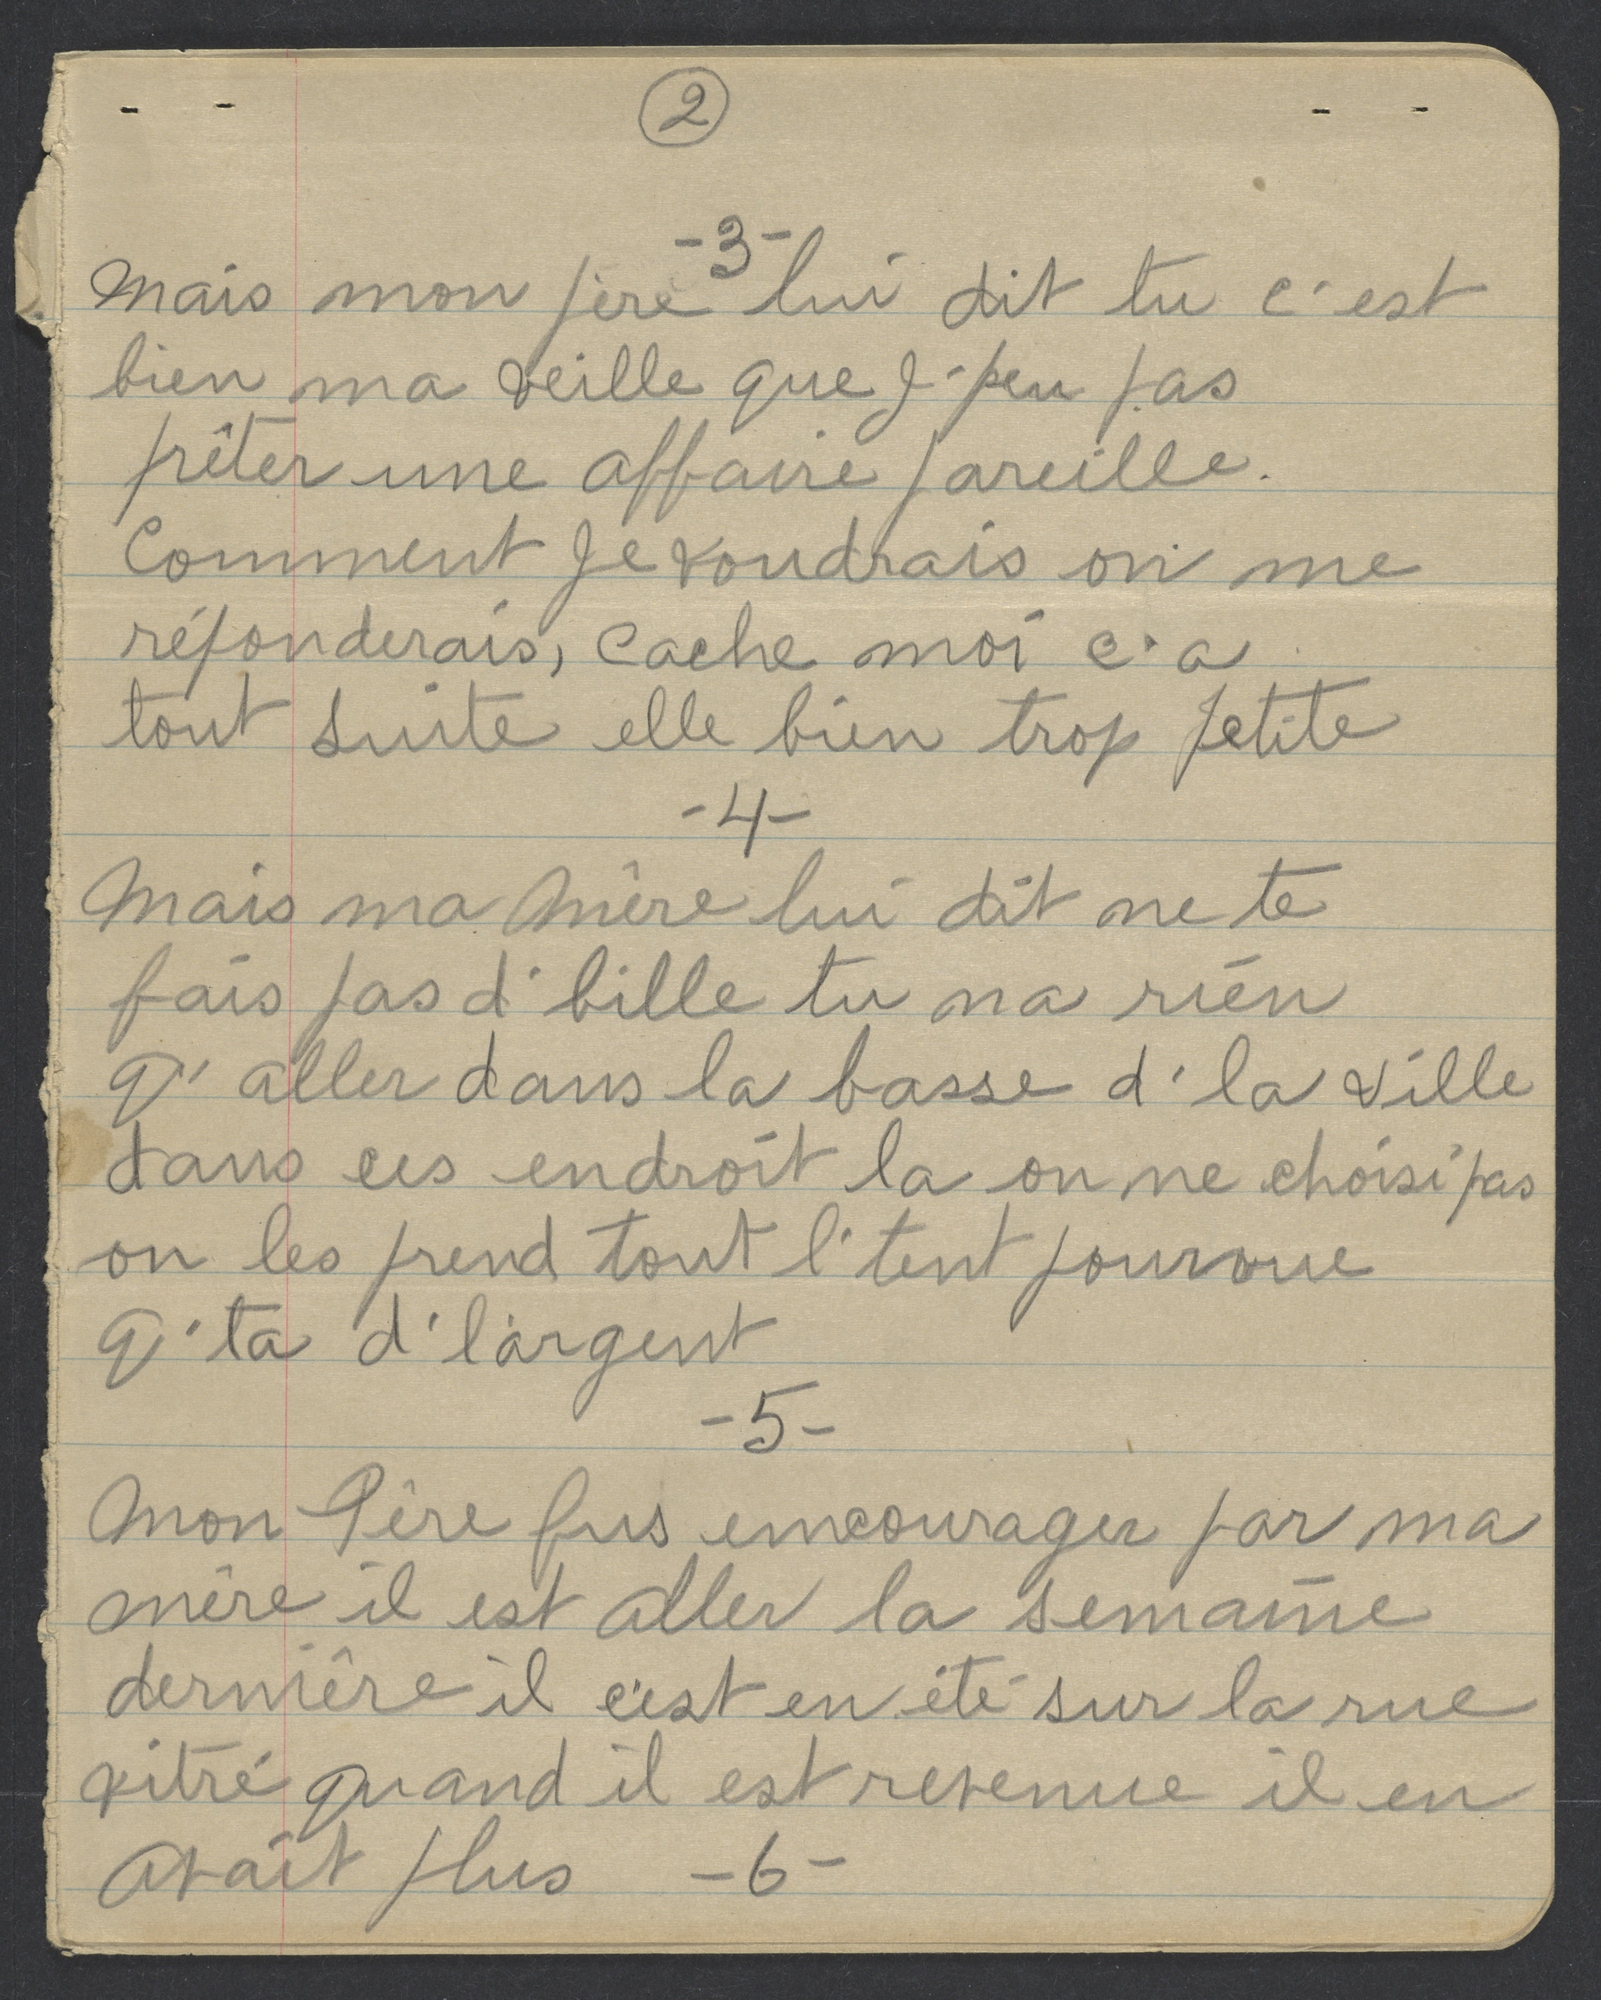 2
-3-
Mais mon père lui dit tu c'est
bien ma veille que j-peu pas
prêter une affaire pareille.
Comment je voudrais on me
réponderais, cache moi c'a
tout suite elle bien trop petite
-4-
Mais ma mère lui dit ne te
fais pas d'bille tu na rien
q' aller dans la basse d'la ville
dans ces endroit la on ne choisi pas
on les prend tout l'tent pourvue
q'ta d'l'argent
-5-
Mon Père fus emcourager par ma
mère il est aller la semaine
dernière il c'est en été sur la rue
vitré quand il est revenue il en
avait plus -6-